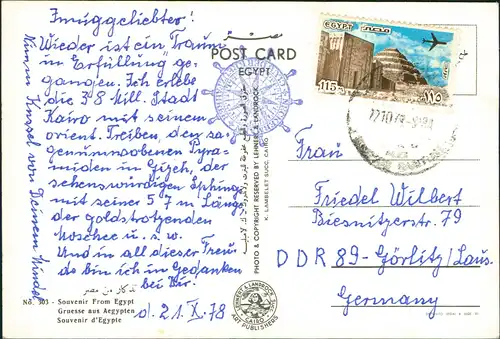 Inniggeliebter!
Wieder ist ein Traum
in Erfüllung ge-
gangen. Ich erlebe
die 7-8 Mill. Stadt
Kairo mit seinem
orient. Treiben, den sa-
genumwobenen Pyra-
miden in Gizeh, der
sehenswürdigen Sphinx
mit seiner 57 m Länge,
der goldstrotzenden
Moschee u. s. w.
Und in all dieser Freu-
de bin ich in Gedanken
bei Dir.
d. 21. X. 78
Nimm Küssel von Deinem
No. 303 - Souvenir From Egypt تذكار من مصر
Gruesse aus Aegypten
Souvenir d'Egypte
مصر
POST CARD
EGYPT
PHOTO & COPYRIGHT RESERVED BY LEHNERT & LANDROCK
K. LAMBELET SUCC. CAIRO
LEHNERT & LANDROCK
CAIRO
ART PUBLISHERS
EGYPT مصر
115 ١١٥
Frau
Friedel Wilbert
Biesnitzerstr. 79
DDR 89-Görlitz/Laus.
Germany